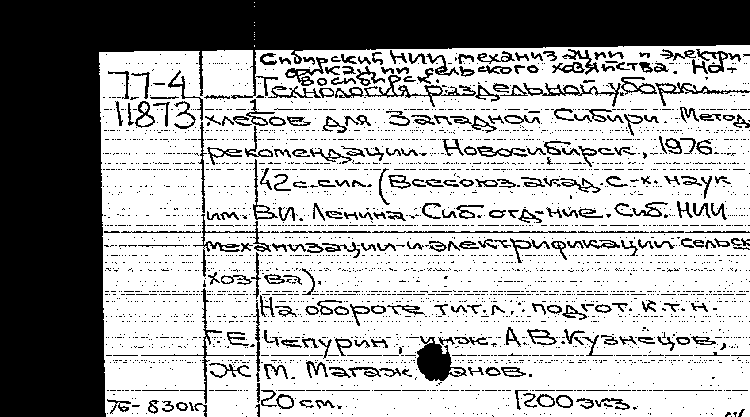 Сибирский НИИ механизации и электри-
фикации сельского хозяйства. Но-
восибирск.
77-4
11873
Технология раздельной уборки
хлебов для Западной Сибири. Метод.
рекомендации. Новосибирск, 1976.
42 с. с ил. (Всесоюз. акад. с.-х. наук
им. В.И. Ленина. Сиб. отд-ние. Сиб. НИИ
механизации и электрификации сельск.
хоз-ва).
На обороте тит. л.: подгот. к.т.н.
Г.Е. Чепурин, инж. А.В. Кузнецов,
Ж. М. Магаж анов.
20 см. 1200 экз.
76-8301